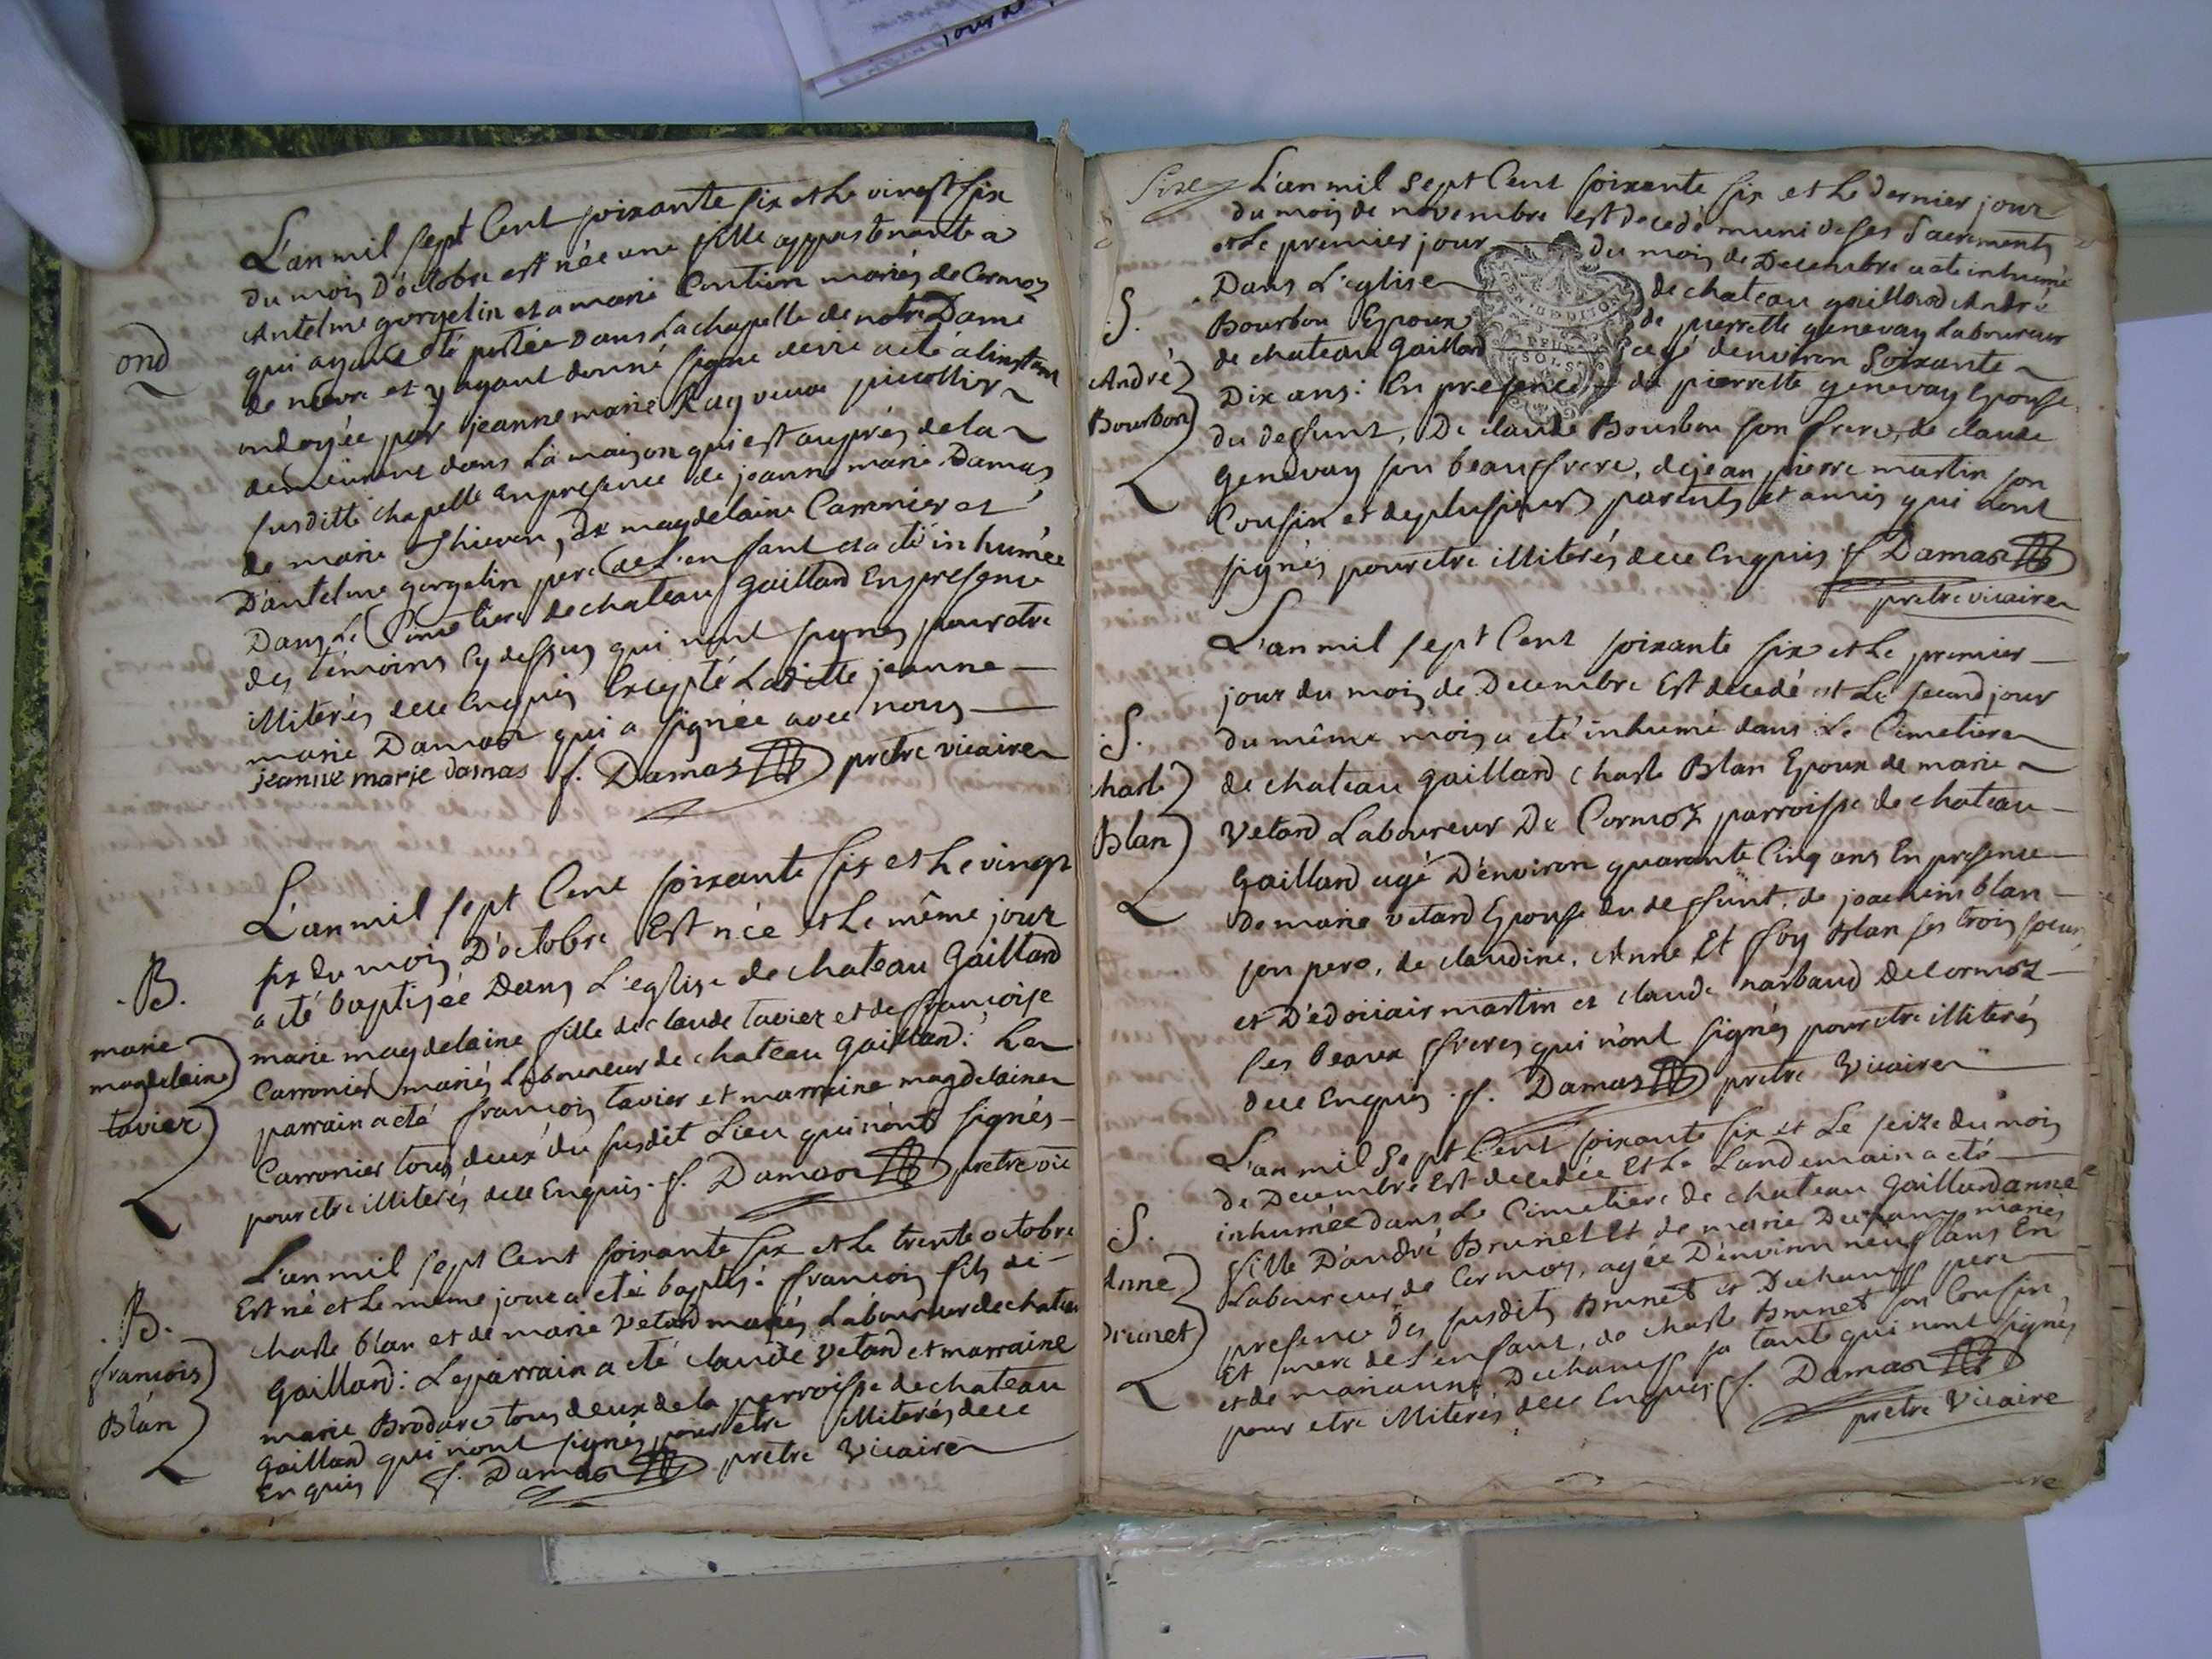 L'an mil sept Cent soixante six et Le vingt six
du mois D'octobre est née une fille appartenante a
Antelme gorgelin et a marie Contion mariés de Cormoz
qui ayant été portée Dans La chapelle de notre Dame
de nievre et y ayant donné signe de vie a eté a linstant
ond
ondoyée par jeanne marie Ray veuve
demeurant dans La maison qui est auprés de la
susditte chapelle en presence de jeanne marie Damas
de marie Thievon, De magdelaine Carronier et
D'antelme gorgelin pere de L'enfant et a eté inhumée
Dans Le Cimetiere de chateau gaillard En presence
des témoins cy dessus qui n'ont signés pour etre
illiterés de ce Enquis Excepté Laditte jeanne
marie Damas qui a signée avec nous
jeanne marie damas f. Damas pretre vicaire
L'an mil sept Cent soixante six et Le vingt
six du mois D'octobre Est née et Le même jour
.B. a eté baptisée Dans L'eglise de chateau Gaillard
marie marie magdelaine fille de claude tavier et de françoise
magdelaine Carronier mariés Laboureur de chateau Gaillard: Le
tavier parrain a eté françois tavier et marraine magdelaine
Carronier tous deux du susdit Lieu qui n'ont signés
pour etre illiterés de ce Enquis. f. Damas pretre vic
L'an mil sept Cent soixante six et Le trente octobre
Est né et Le meme jour a eté baptisé françois fils de
.B. charle blan et de marie vetard mariés Laboureur de chateau
françois Gaillard: Le parrain a eté claude vetard et marraine
Blan marie Brodare tous deux de la parroisse de chateau
Gaillard qui n'ont signés pour etre illiterés de ce
Enquis f. Damas pretre Vicaire
L'an mil sept Cent soixante six et Le dernier jour
du mois de novembre est decedé muni de ses Sacrements
et Le premier jour du mois de Decembre a eté inhumé
Dans L'eglise de chateau gaillard André
S. Bourbon Epoux de pierrette genevay Laboureur
de chateau Gaillard agé denviron Soixante
André Dix ans: En presence de pierrette genevay Epouse
Bourbon du deffunt, De claude Bourbon son frere, de claude
genevay son beaufrere, de jean pierre martin son
Cousin et de plusieurs parents et amis qui n'ont
signés pour etre illiterés de ce Enquis f. Damas
pretre vicaire
L'an mil sept Cent soixante six et Le premier
jour du mois de Decembre Est decedé et Le second jour
S. du même mois a eté inhumé dans Le Cimetiere
harle de chateau Gaillard charle Blan Epoux de marie
Blan Vetard Laboureur De Cormoz parroisse de chateau
Gaillard agé D'environ quarante Cinq ans En presence
de marie vetard Epouse du deffunt, de joachim blan
son pere, de claudine, Anne Et foy Blan ses trois soeurs
et D'édoüair martin et claude narbaud De Cormoz
ses beaux freres qui n'ont signés pour etre illiterés
de ce Enquis. f. Damas pretre Vicaire
L'an mil Sept Cent soixante six et Le seize du mois
de Decembre Est decedée Et Le Landemain a eté
inhumée dans Le Cimetiere de chateau Gaillard anne
S. fille D'andré Brunet Et de marie Duchamp mariés
Anne Laboureur de Cormoz, agée D'environ neuf ans En
Brunet presence Des susdits Brunet et Duchamp pere
Et mere de L'enfant, de charle Brunet son Cousin,
et de marianne Duchamp sa tante qui n'ont signés
pour etre illiterés de ce Enquis f. Damas
pretre Vicaire